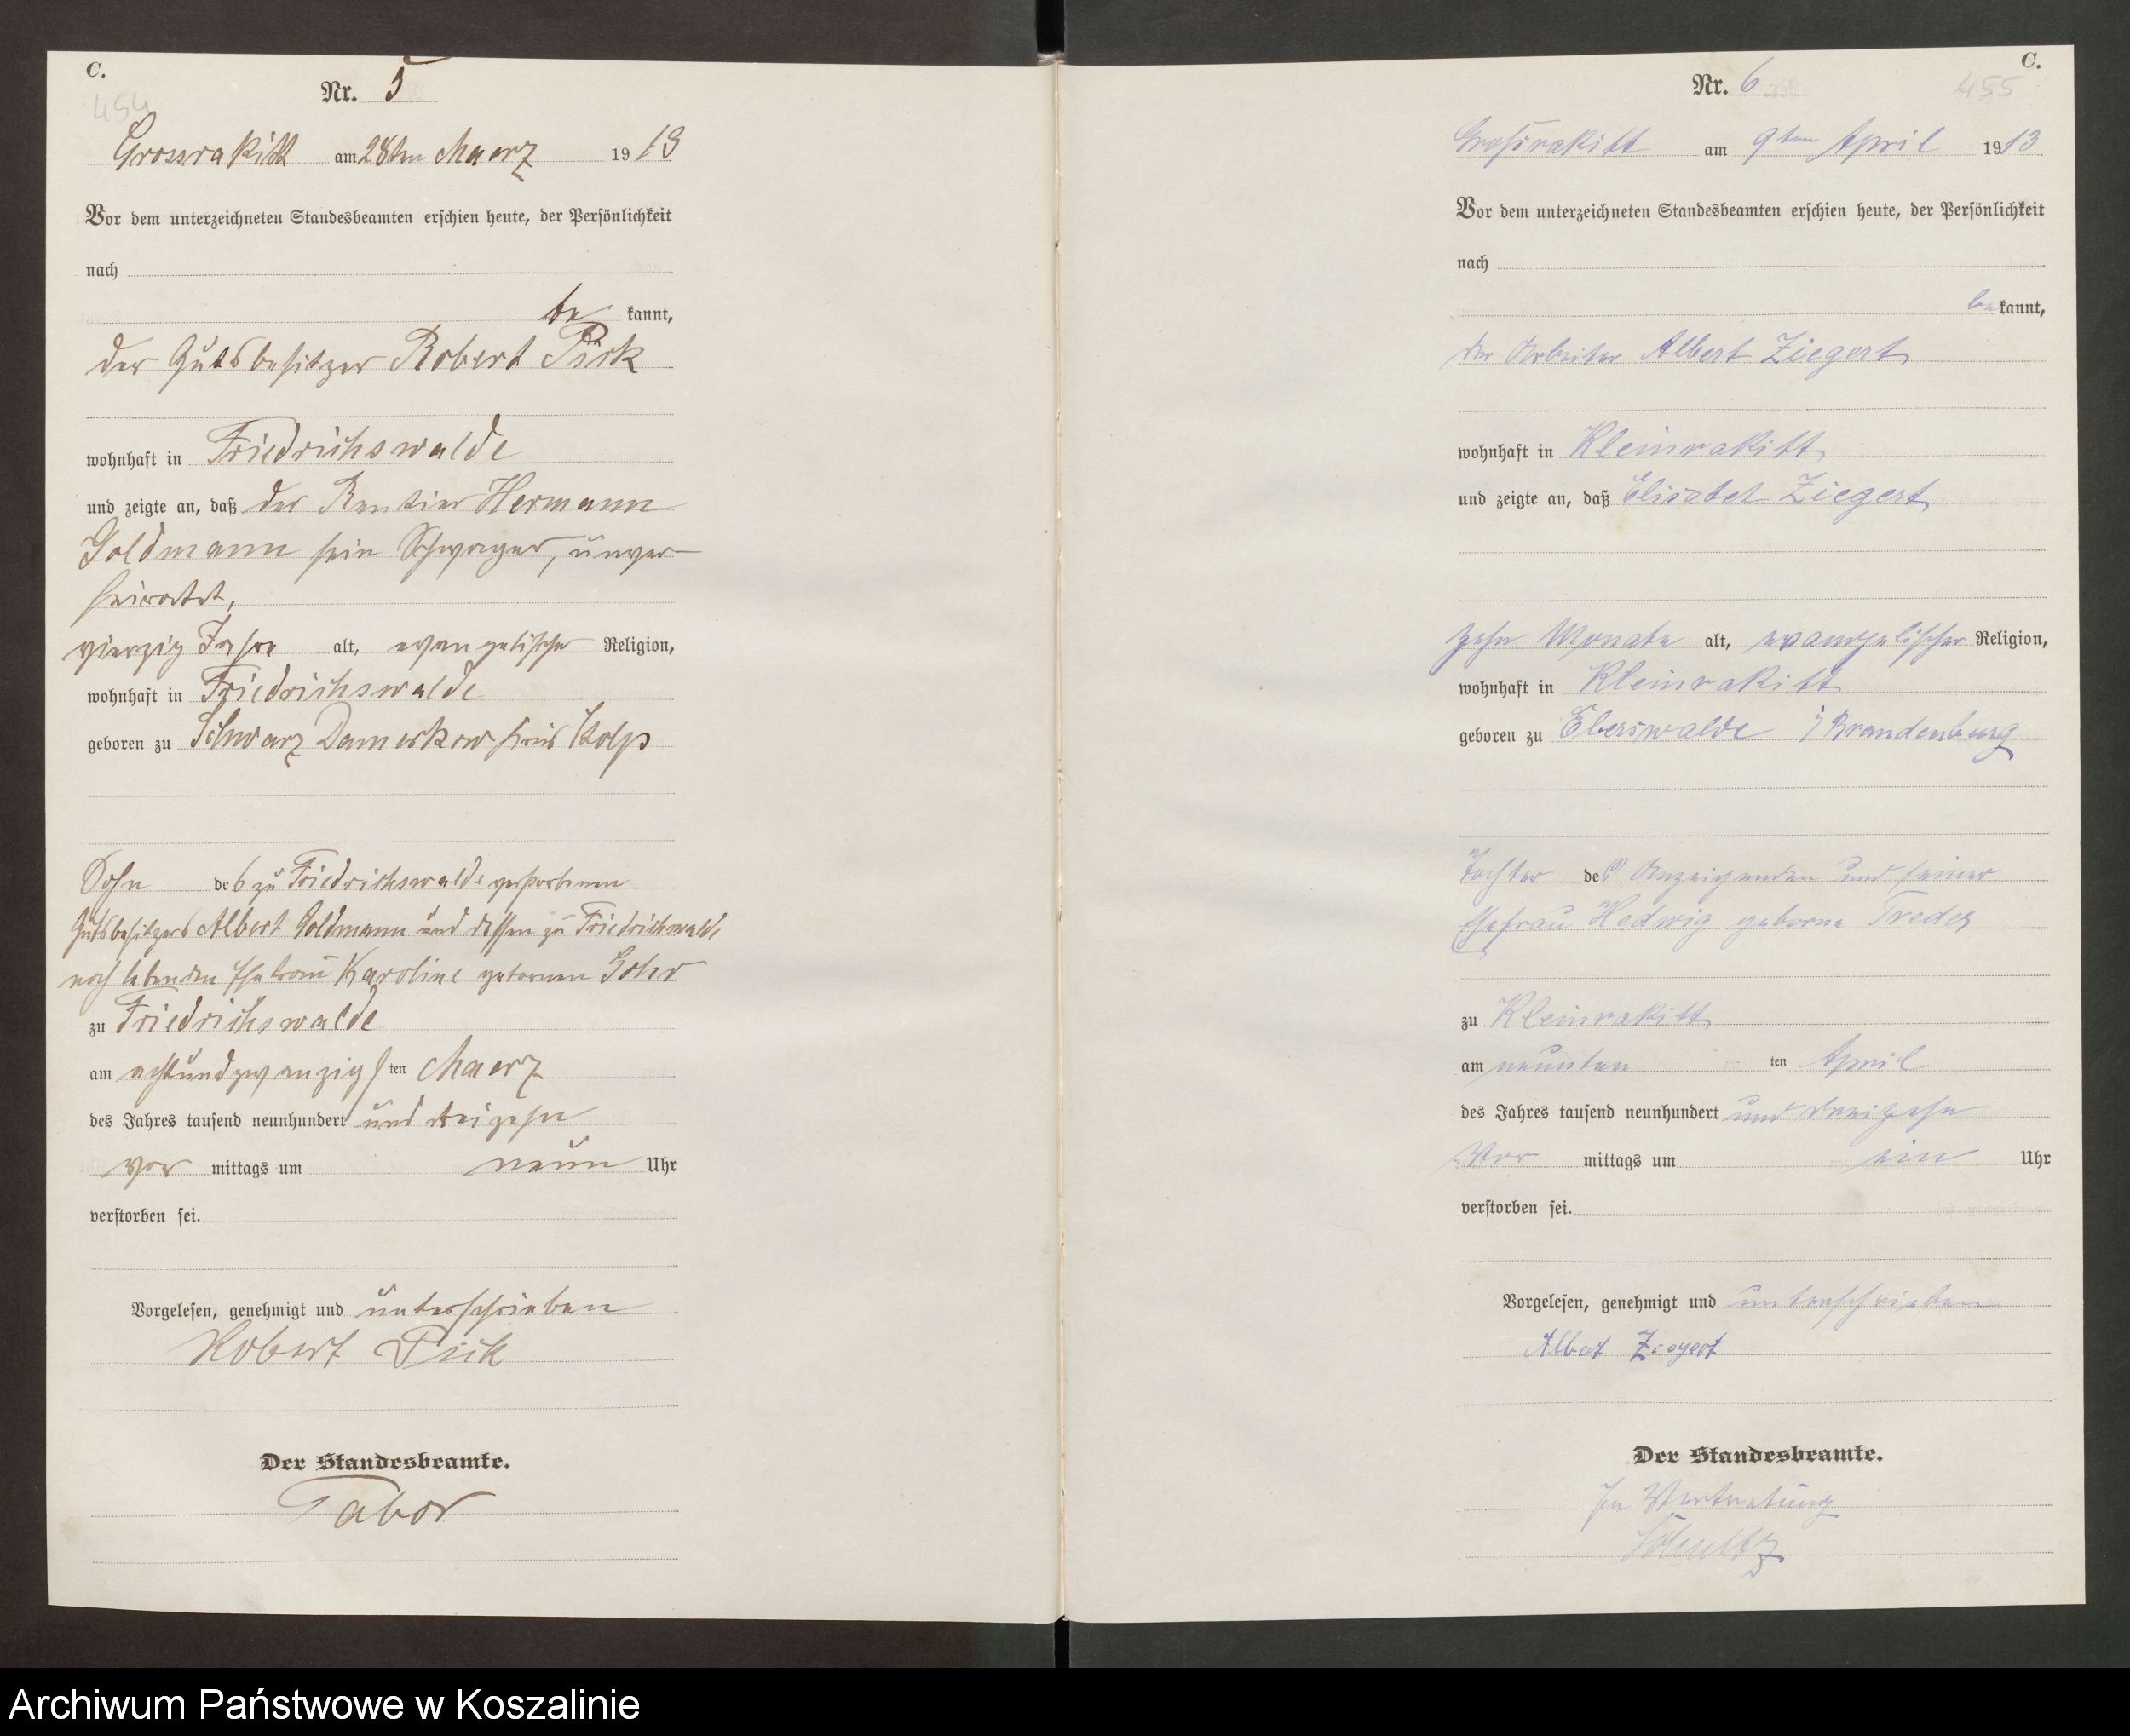 C.
454
Nr. 5
Grossrakitt am 28ten Maerz 1913
Vor dem unterzeichneten Standesbeamten erschien heute, der Persönlichkeit
nach
be kannt,
der Gutsbesitzer Robert Pick
wohnhaft in Friedrichswalde
und zeigte an, daß der Rentier Hermann
Goldmann sein Schwager, unver-
heiratet,
vierzig Jahre alt, evangelischer Religion,
wohnhaft in Friedrichswalde
geboren zu Schwarz Damerkow Kreis Stolp
Sohn des zu Friedrichswalde verstorbenen
Gutsbesitzers Albert Goldmann und dessen zu Friedrichswalde
noch lebenden Ehefrau Karoline gebornen Gohr
zu Friedrichswalde
am achtundzwanzigsten Maerz
des Jahres tausend neunhundert und dreizehn
vor mittags um neun Uhr
verstorben sei.
Vorgelesen, genehmigt und unterschrieben
Robert Pick
Der Standesbeamte.
Tabor
C.
455
Nr. 6
Großrakitt am 9ten April 1913
Vor dem unterzeichneten Standesbeamten erschien heute, der Persönlichkeit
nach
be kannt,
der Arbeiter Albert Ziegert
wohnhaft in Kleinrakitt
und zeigte an, daß Elisabet Ziegert
zehn Monate alt, evangelischer Religion,
wohnhaft in Kleinrakitt
geboren zu Eberswalde i/Brandenburg
Tochter des Anzeigenden und seiner
Ehefrau Hedwig geborne
zu Kleinrakitt
am neunten ten April
des Jahres tausend neunhundert und dreizehn
Vor mittags um ein Uhr
verstorben sei.
Vorgelesen, genehmigt und unterschrieben
Albert Ziegert
Der Standesbeamte.
In Vertretung
Schultz
Archiwum Państwowe w Koszalinie